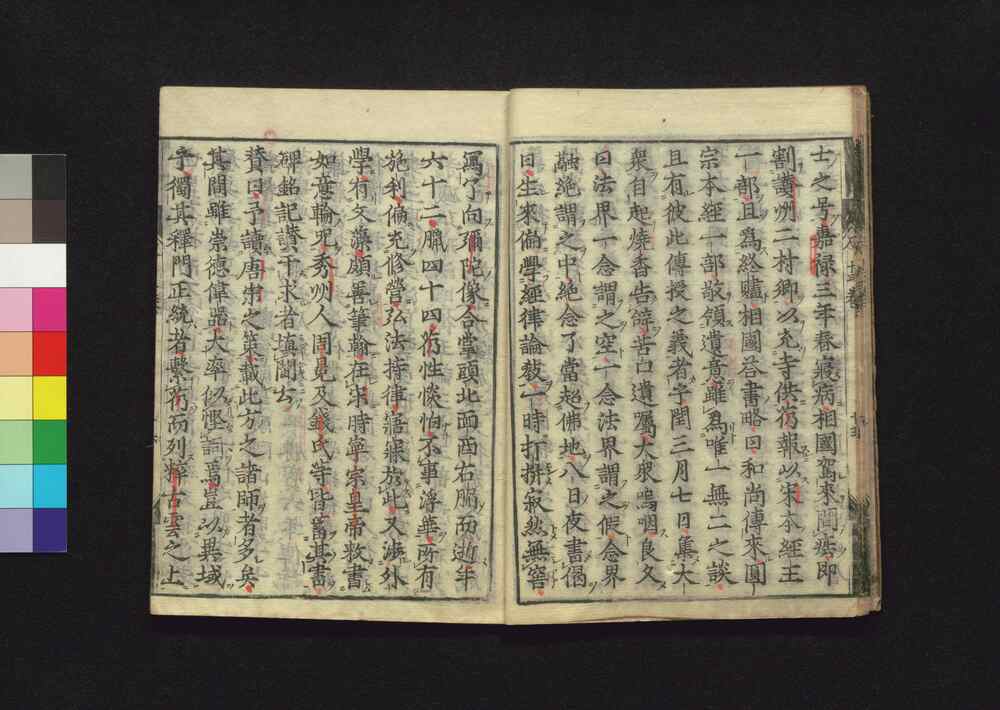 士之号嘉禄三年春寢病相國駕來問恙即
割藝州二村卿以充寺供仍報以宋本經王
一部且為終驢相國答書略曰和尚傳來圓
宗本經一部敬領遺意雖為唯一無二之談
且有彼此傳授之義者乎閏三月七日集大
衆自起燒香告辭苦口遺屬大衆嗚咽良久
曰法界一念謂之空一念法界謂之假念界
融絶謂之中絶念了當超佛地八日夜書偈
曰生來偏學經律論教一時打拼寂然無窖
寫了向彌陀像合掌頭北面西右脇而逝年
六十二臘四十四芿性恢怕不事浮華所有
施利偏充修營弘法持律寤寐於此又渉外
學有文藻頗善筆翰在宋時寧宗皇帝敕書
如意輪咒秀州人聞見及錢氏等皆蓄其書
碑銘記讃干求者填闐云
賛曰予讀唐宋之策載此方之諸師者多矣
其間雖崇德偉器大率以俚詞焉豈以異域
乎獨其釋門正統者繫芿而列粹古雲之上